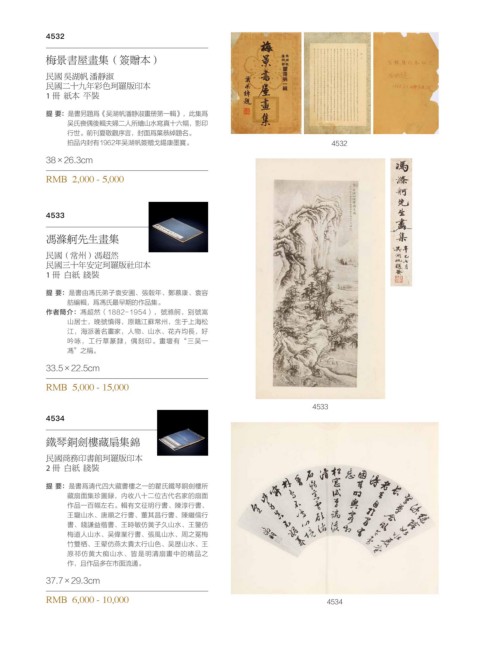 4532
梅景書屋畫集（簽贈本）
民國 吳湖帆 潘靜淑
民國二十九年彩色珂羅版印本
1 冊 紙本 平裝
提 要：是書另題爲《吳湖帆潘靜淑畫冊第一輯》，此集爲
吳氏賢偶連輯夫婦二人所繪山水寫真十六幅，影印
行世。前刊夏敬觀序言，封面爲葉恭綽題名。
拍品內封有1962年吳湖帆簽贈
38×26.3cm
RMB 2,000 - 5,000
4533
馮滌舸先生畫集
民國（常州）馮超然
民國三十年安定珂羅版社印本
1 冊 白紙 綫裝
提 要：是書由馮氏弟子袁安圃、張穀年、鄭慕康、袁容
舫編輯，爲馮氏最早期的作品集。
作者簡介：馮超然（1882-1954），號滌舸，別號嵩
山居士，晚號慎得，原籍江蘇常州，生于上海松
江，海派著名畫家，人物、山水、花卉均長，好
吟咏，工行草篆隸，偶刻印。畫壇有“三吴一
馮”之稱。
33.5×22.5cm
RMB 5,000 - 15,000
4534
鐵琴銅劍樓藏扇集錦
民國商務印書館珂羅版印本
2 冊 白紙 綫裝
提 要：是書爲清代四大藏書樓之一的瞿氏鐵琴銅劍樓所
藏扇面集珍圖録，內收八十二位古代名家的扇面
作品一百幅左右。輯有文征明行書、陳淳行書、
王寵山水、唐順之行書、董其昌行書、陳繼儒行
書、錢謙益楷書、王時敏仿黃子久山水、王鑒仿
梅道人山水、吳偉業行書、張風山水、周之冕梅
竹雙栖、王翬仿燕太貴太行山色、吳歷山水、王
原祁仿黃大痴山水，皆是明清扇畫中的精品之
作，且作品多在市面流通。
37.7×29.3cm
RMB 6,000 - 10,000
梅景書屋畫集
葉恭綽題
4532
馮滌舸先生畫集
4533
4534